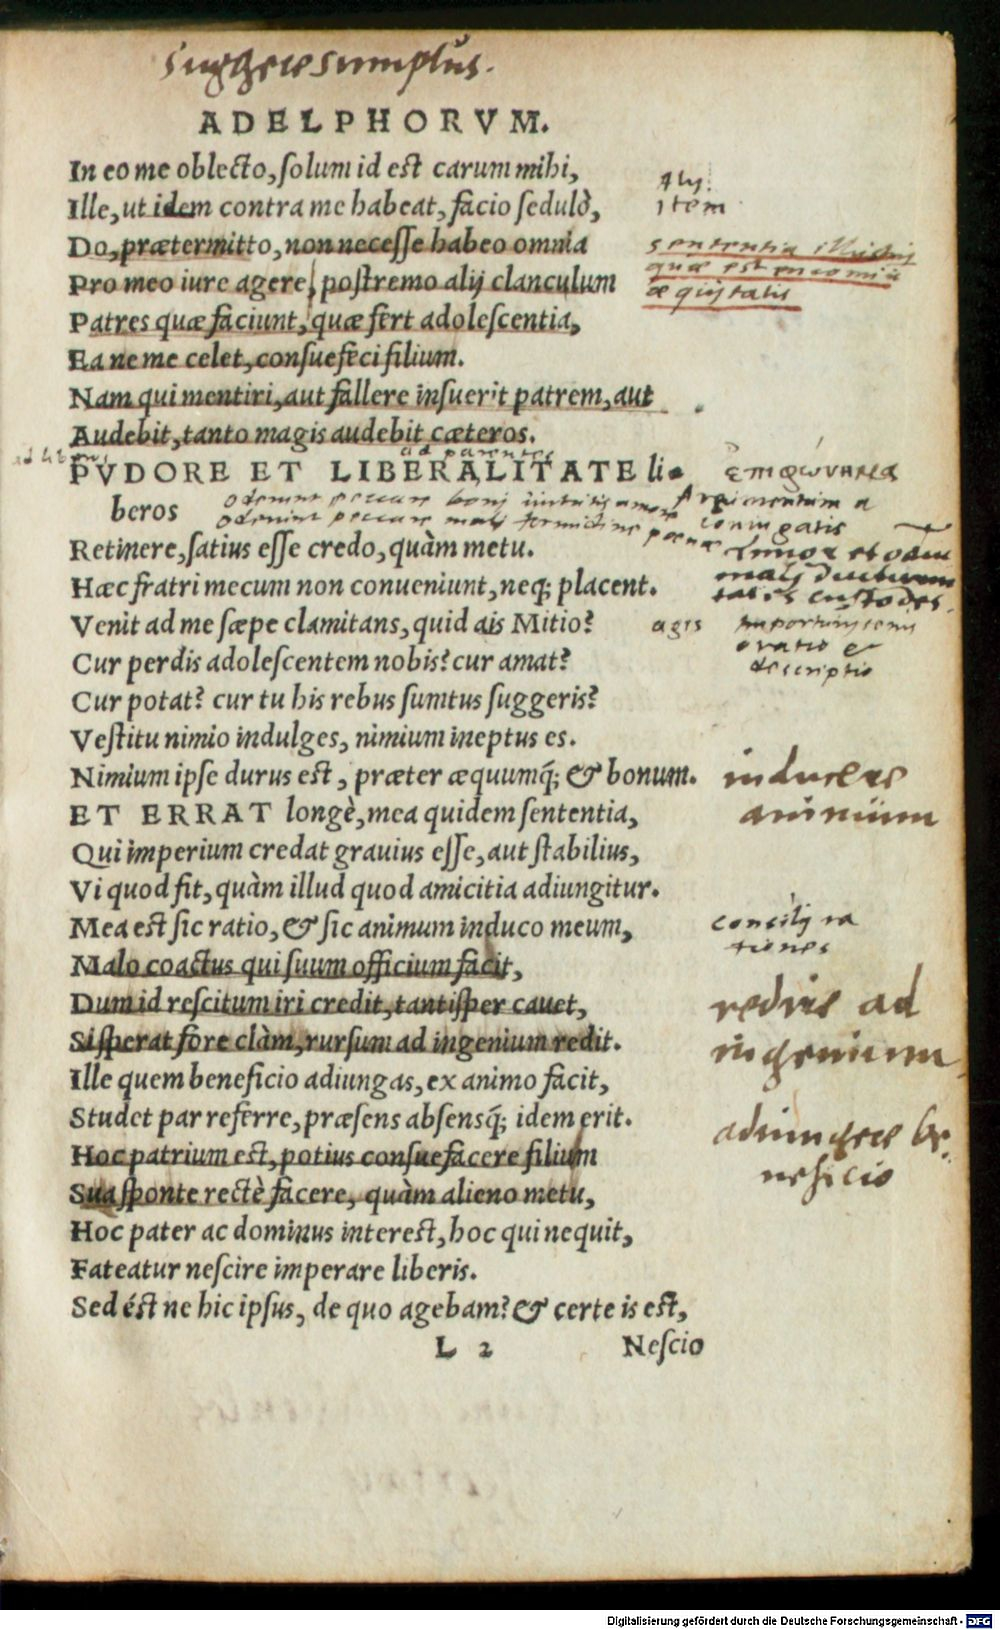 suggere sumptus.
ADELPHORVM.
In eo me oblecto, ſolum id est carum mihi,
Ille, ut idem contra me habeat, facio ſedulò,
item
Do, prætermitto, non neceſſe habeo omnia
sententia
Pro meo iure agere, poſtremo alij clanculum
quæ est encomiũ
æquitatis
Patres quæ faciunt, quæ fert adoleſcentia,
Ea ne me celet, conſuefeci filium.
Nam qui mentiri, aut fallere inſuerit patrem, aut
Audebit, tanto magis audebit cæteros.
ad parentes
PVDORE ET LIBERALITATE li-
beros
oderunt peccare boni uirtutis amore
Argumentum a
oderunt peccare mali formidine pœnæ
coniugatis
Retinere, ſatius eſſe credo, quàm metu.
Timor et odium
Hæc fratri mecum non conueniunt, neq; placent.
malj diuturnitatis custodes.
Venit ad me ſæpe clamitans, quid ais Mitio?
agis
oratio et
descriptio
Cur perdis adoleſcentem nobis? cur amat?
Cur potat? cur tu his rebus ſumtus ſuggeris?
Veſtitu nimio indulges, nimium ineptus es.
Nimium ipſe durus est, præter æquumq́; & bonum.
inducere
animum
ET ERRAT longè, mea quidem ſententia,
Qui imperium credat grauius eſſe, aut ſtabilius,
Vi quod fit, quàm illud quod amicitia adiungitur.
Mea est ſic ratio, & ſic animum induco meum,
concilij ra
tiones
Malo coactus qui ſuum officium facit,
Dum id reſcitum iri credit, tantiſper cauet,
redire ad
Si ſperat fore clàm, rurſum ad ingenium redit.
ingenium
Ille quem beneficio adiungas, ex animo facit,
Studet par referre, præſens abſensq́; idem erit.
adiungere be-
neficio
Hoc patrium est, potius conſuefacere filium
Sua ſponte rectè facere, quàm alieno metu,
Hoc pater ac dominus interest, hoc qui nequit,
Fateatur neſcire imperare liberis.
Sed ést ne hic ipſus, de quo agebam? & certe is est,
L 2
Neſcio
Digitalisierung gefördert durch die Deutsche Forschungsgemeinschaft - DFG